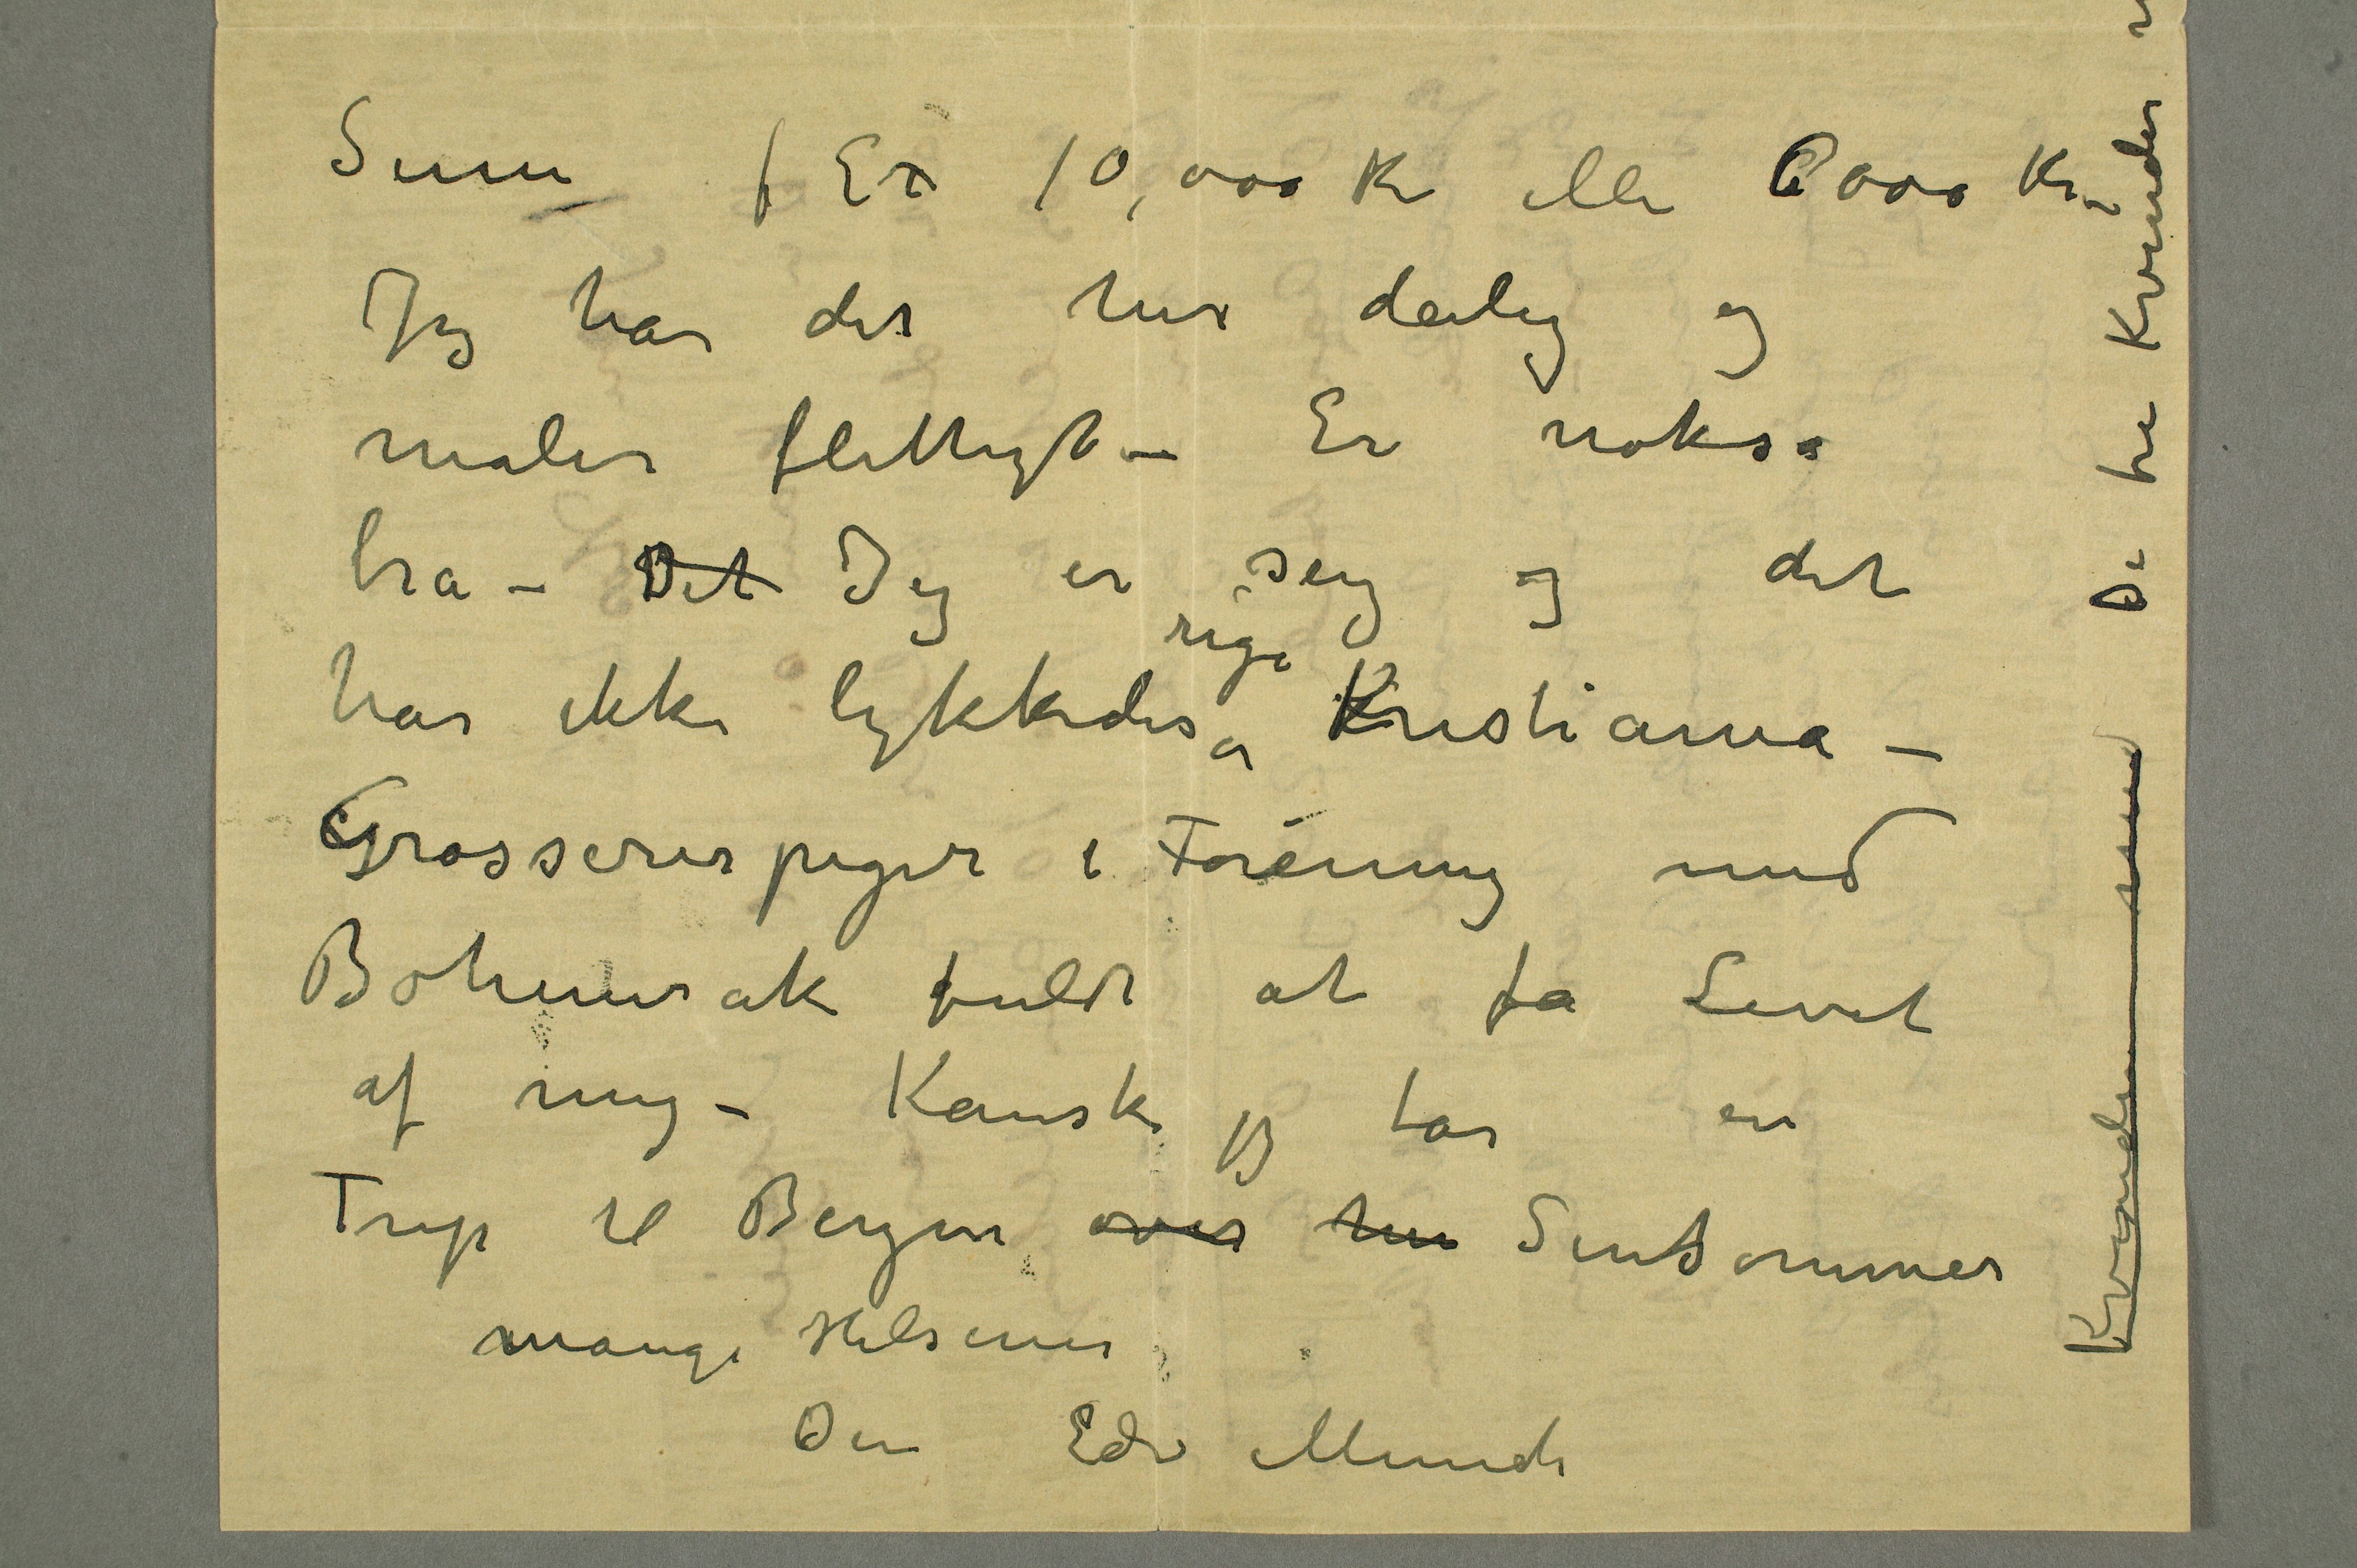 Sum f Ex 10,000 Kr eller 6000 Kr –
Jeg har det her deilig og
maler flittigt – Er noksa
bra – Det Jeg er seig og det
har ikke lykkedes rige Kristiania –
Grosserer piger i Forening med
Bohemer ak fuldt at fa Livet
af mig – Kanske jeg tar en
Trip til Bergen over her Sensommer
mange Hilsener
Din Edv Munch
De tre Kvinder
Kvinden med